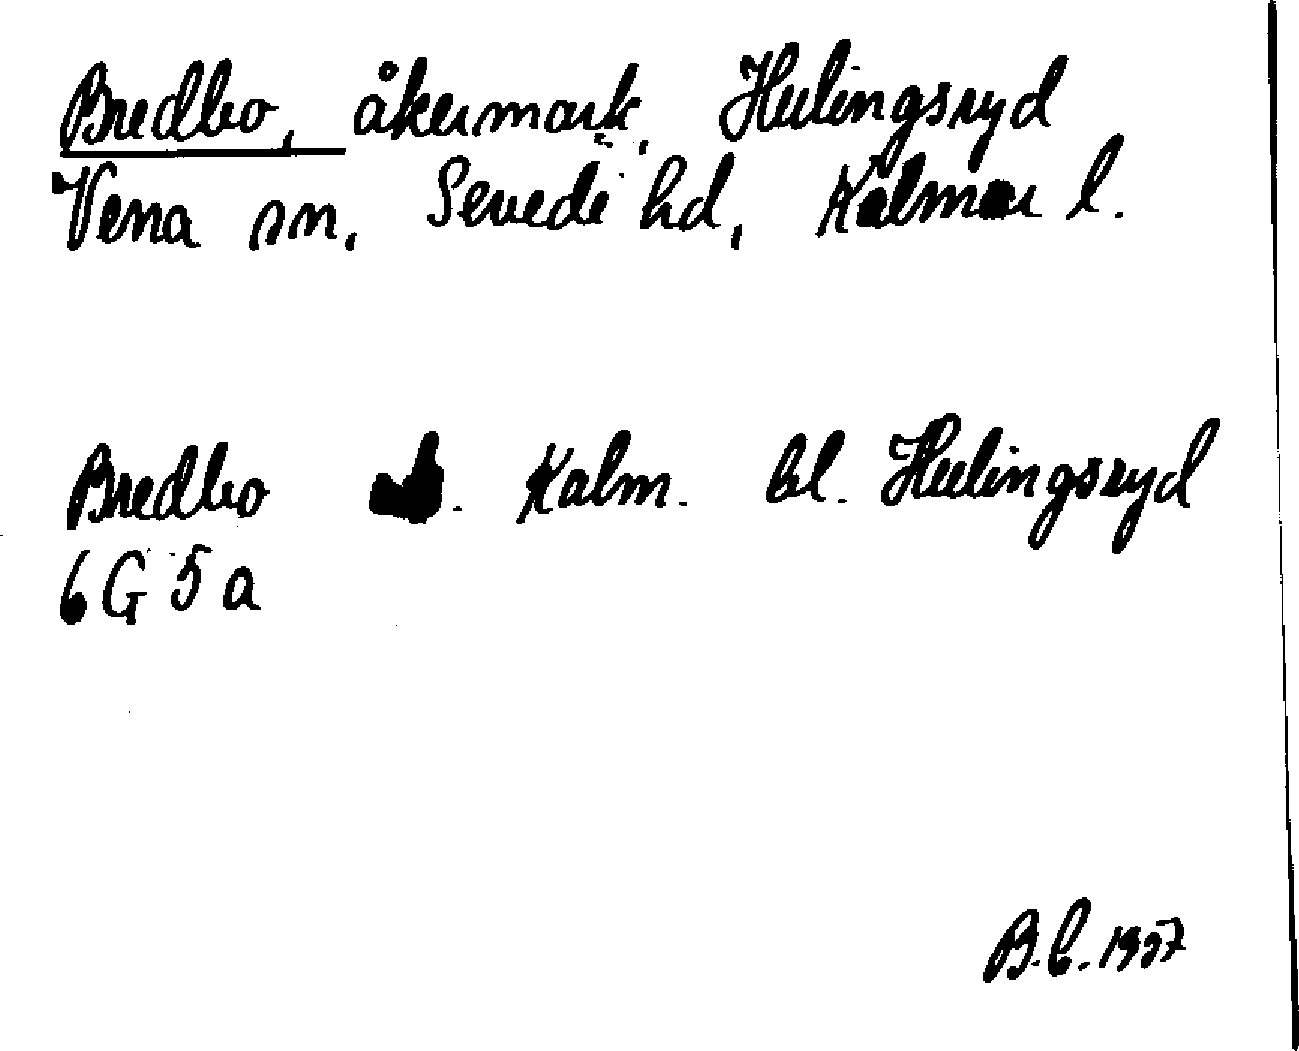 Bredbo, åkermark, Hulingsryd
Vena sn, Sevede hd, Kalmar l.
Bredbo Kalm. bl. Hulingsryd
6G 5a
B.C. 1957